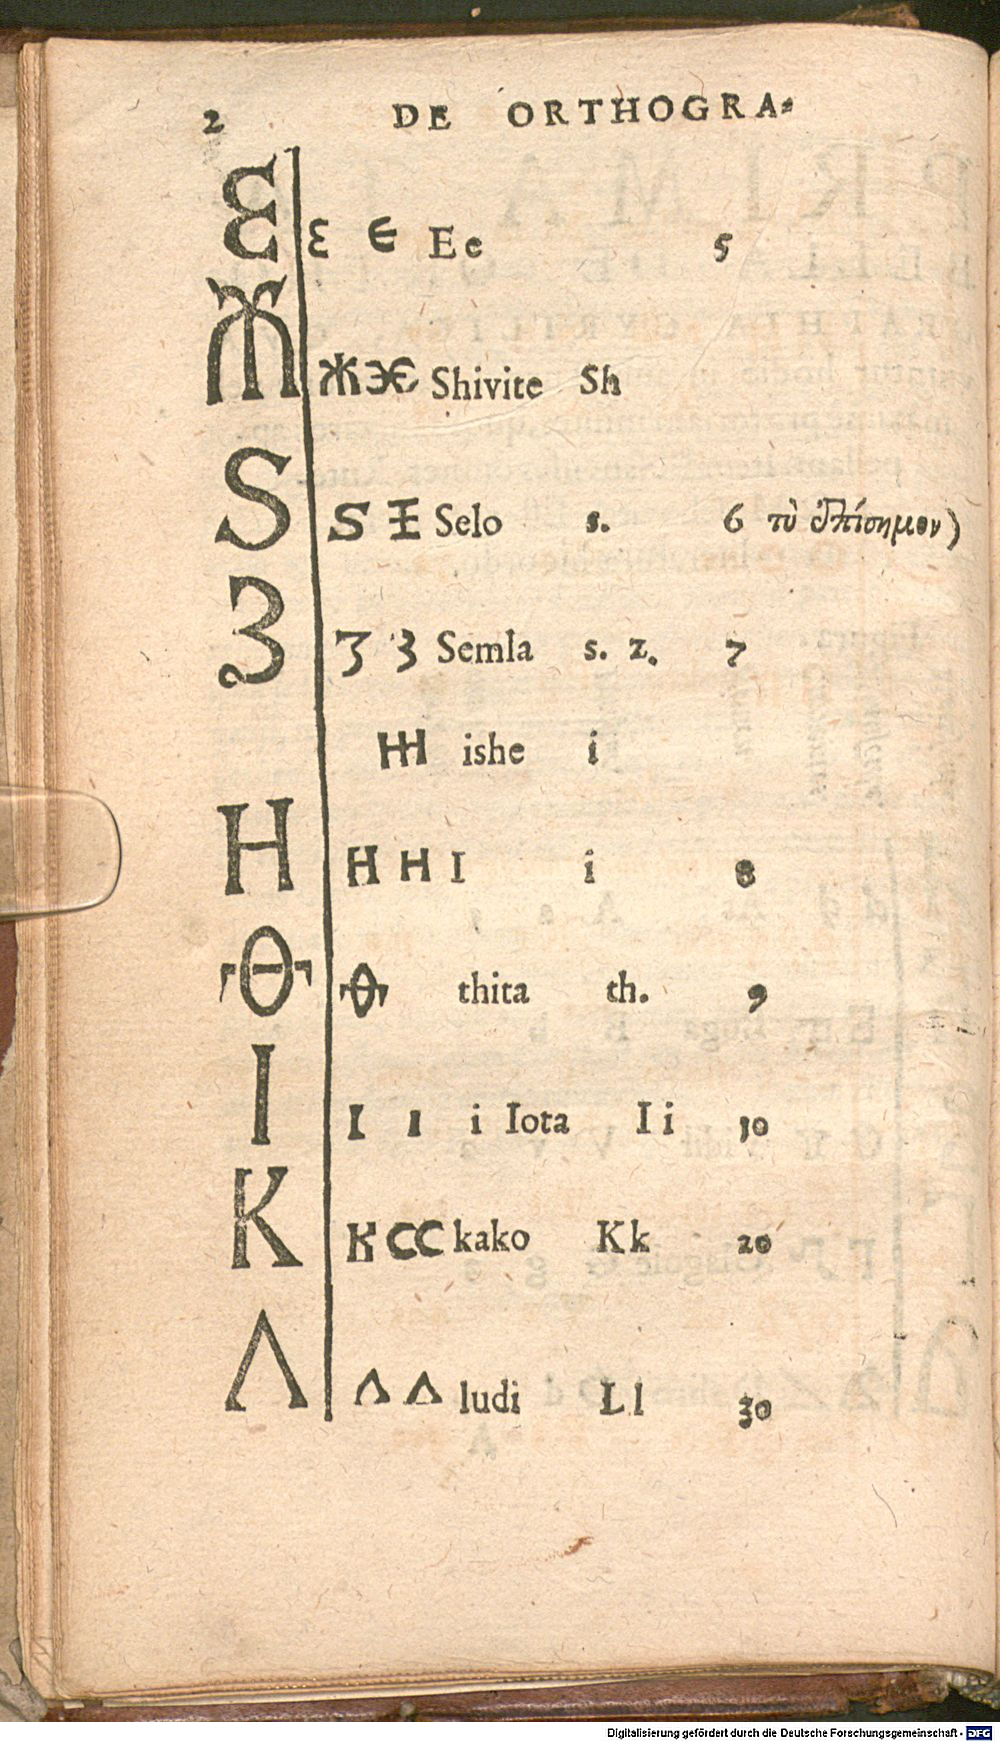 2 DE ORTHOGRA-
Є ε є E e 5
Ж ж ж Shivite Sh
Ѕ ѕ Selo s. 6 τὸ ἐπίσημον)
З з з Semla s. z. 7
ishe i
H H H I i 8
Ѳ Ѳ thita th. 9
I I ı i Iota I i 10
K K kako K k 20
Λ Λ Λ ludi L l 30
Digitalisierung gefördert durch die Deutsche Forschungsgemeinschaft - DFG